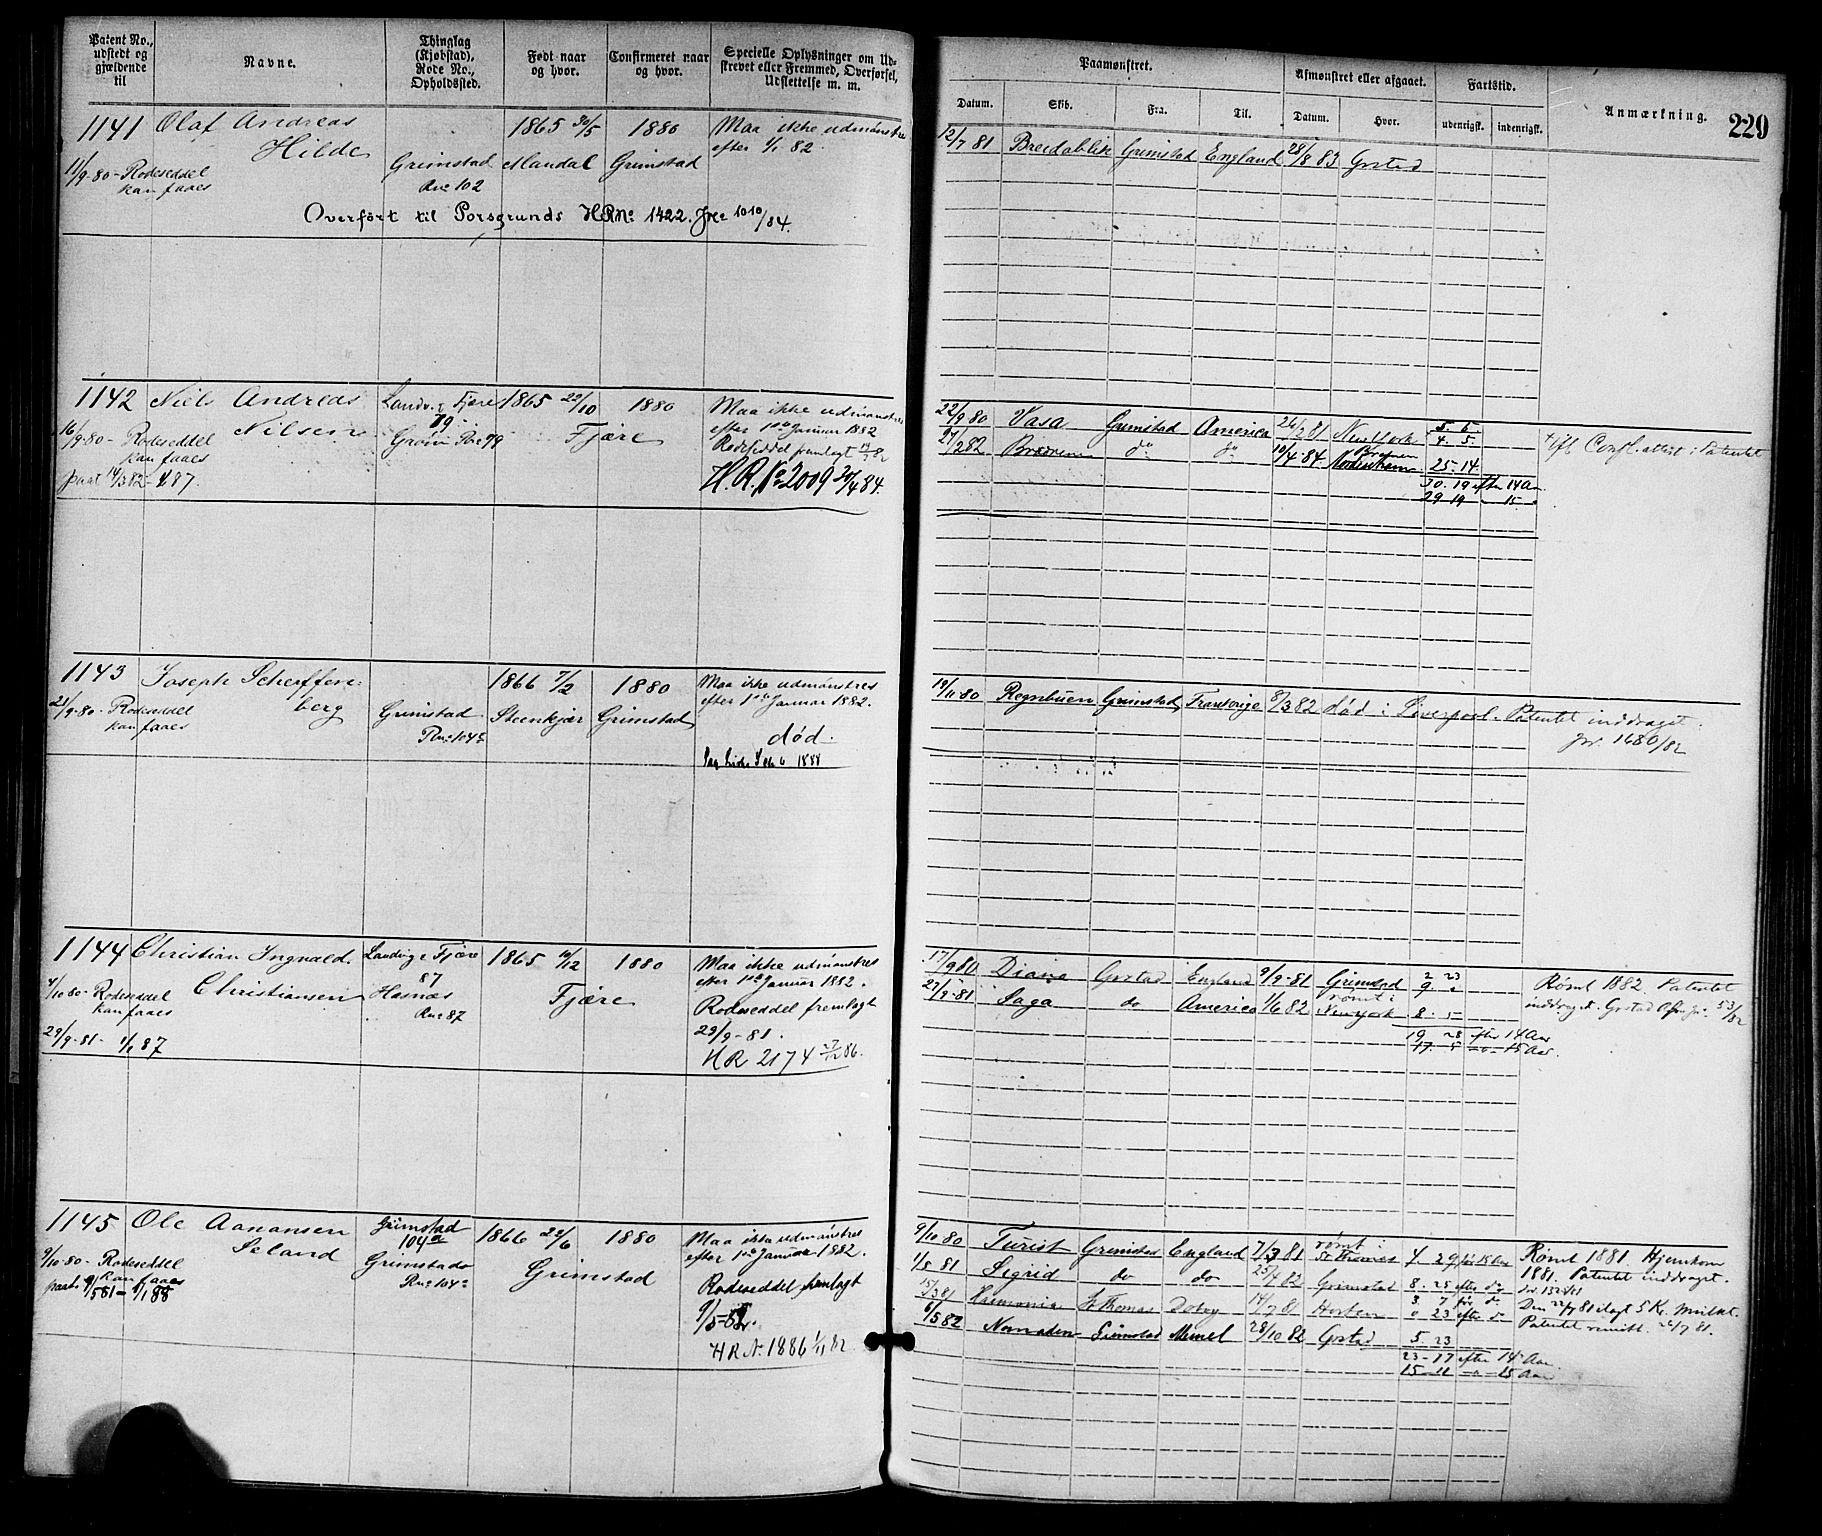 Patent No., udstedt og gjældende til
Navne.
Thinglag (Kjøbstad), Rode No., Opholdssted.
Født naar og hvor.
Confirmeret naar og hvor.
Specielle Oplysninger om Udstrevet eller Fremmed, Overførsel, Udslettelse m. m.
Paamønstret.
Datum.
Skib.
Fra.
Til.
Afmønstret eller afgaaet.
Datum.
Hvor.
Fartstid.
udenrigsk.
indenrigsk.
Anmærkning.
229
1141 Olaf Andreas Hilde
11/9-80- Rodeseddel kan faaes
Grimstad Rno 102
1865 30/5 Mandal
1880 Grimstad
Maa ikke udmønstres efter 1/1 82.
Overført til Porsgrunds HRNo 1422. Jno 1010/84.
12/7 81 Breidablik Grimstad England 28/8 83 Grstad
1142 Niels Andreas Nilsen
16/9-80- Rodeseddel kan faaes
paat 14/3 82 - 1/1 87.
Landv. Fjære 79
Grøm Rno 79
1865 22/10
1880
Fjære
Maa ikke udmønstres efter 1ste Januar 1882
Rodeseddel fremlagt 14/3 82
H.R.No 2009 30/4 84.
22/9 80 Vasa Grimstad America 26/2 81 New York 5. 5
4. 5.
27/2 82 Brødrene do do 10/4 84 Bremen Nordenham 25-14
30. 19 efter 14 Aar
29 19 " 15 "
Confl. attest i Patentet
1143 Joseph Scheffenberg
21/9-80- Rodeseddel kan faaes
Grimstad Rno 104c
1866 7/2 Steenkjær
1880 Grimstad
Maa ikke udmønstres efter 1ste Januar 1882.
død.
1888
19/11 80 Regnbuen Grimstad Frankrige 8/3 82 død i Liverpool. Patentet inddraget.
Jnr. 1680/82
1144 Christian Ingvald Christiansen
4/10 80- Rodeseddel kan faaes
29/9-81- 1/1 87
Landvig. Fjære 87
Hasnæs Rno 87
1865 10/12
1880
Fjære
Maa ikke udmønstres efter 1ste Januar 1882.
Rodeseddel fremlagt 29/9-81.
HR 2174 27/12 86.
17/9 80 Diana Grstad England 9/9-81 Grimstad 2 23
9 "
29/9-81 Saga do America 1/6 82 rømt i New York 8. 5
19 28 efter 14 Aar
17 5 -o- 15 Aar.
Rømt 1882 Patentet inddraget. Grstad 53/82
1145 Ole Aanansen Seland
9/10-80- Rodeseddel kan faaes
paat. 9/5 81- 1/1 88
Grimstad 104a
Grimstad Rno 104a
1866 22/6
1880
Grimstad
Maa ikke udmønstres efter 1ste Januar 1882.
Rodeseddel fremlagt 9/5-81.
HR No 1886 1/11 82
9/10 80 Turist Grimstad England 7/3 81 rømt i St Thomas 4. 29 før 15 Aar
11/5 81 Sigrid do do 25/4 82 Grimstad 8. 25 efter do
15/3 81 Harmonia St Thomas Doboy 14/7 81 Horten 3 7 før do
0 23 efter do
6/5 82 Nomaden Grimstad Memel 28/10 82 Grstad 5 23
23 - 17 efter 14 Aar.
15 - 11 -o- 15 Aar
Rømt 1881. Hjemkom 1881. Patentet inddraget.
Den 22/7 81 ilagt 5 Kr. Mulkt.
Patentet remitt. 26/7 81.